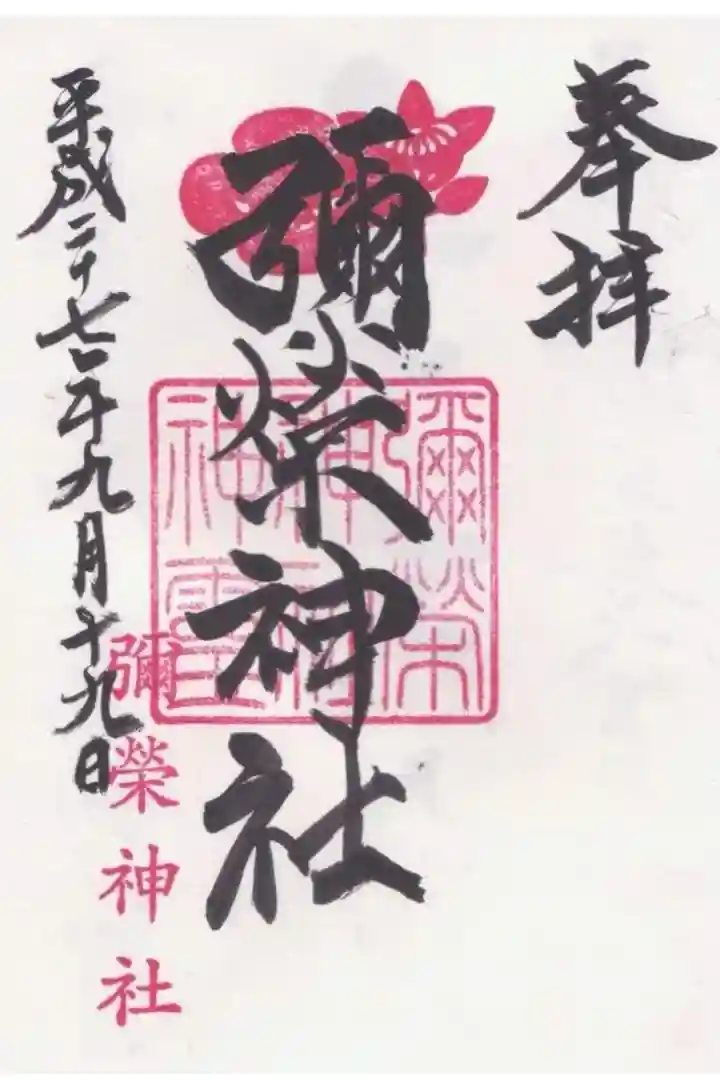 奉拝
彌榮神社
彌榮神社神璽
平成二十七年九月十九日
彌榮神社